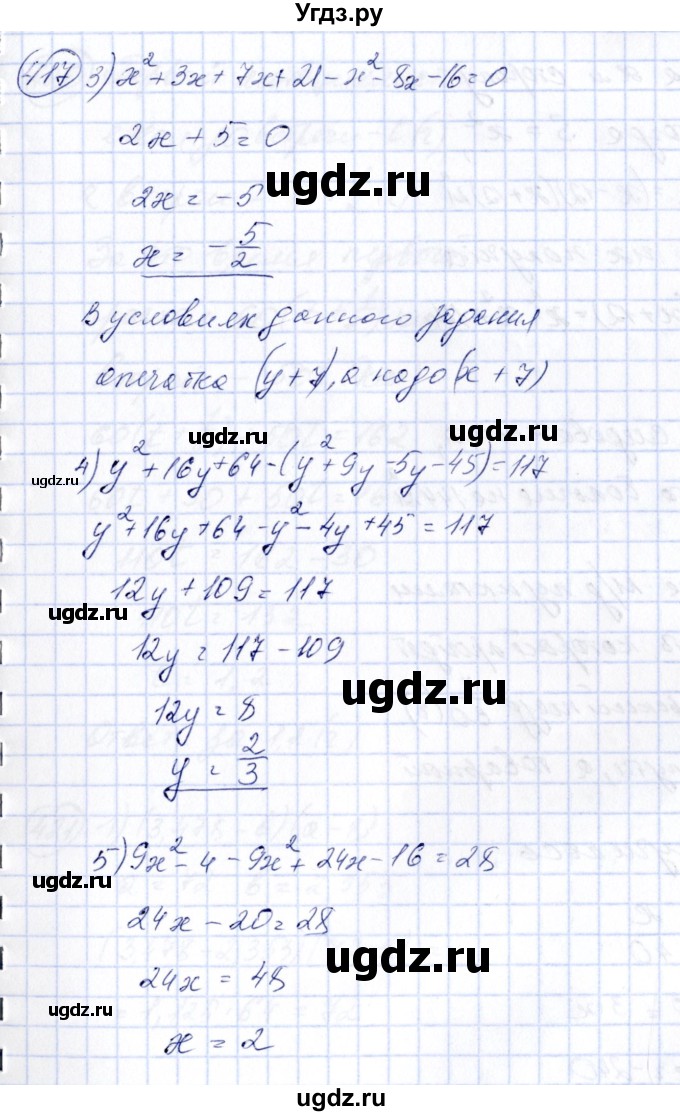 Угдз.ру
417 3) x² + 3x + 7x + 21 - x² - 8x - 16 = 0
2x + 5 = 0
ugdz.ru
ugdz.ru
2x = -5
x = -5/2
В условиях данного задания
опечатка (y + 7), а надо (x + 7)
ugdz.ru
ugdz.ru
ugdz.ru
4) y² + 16y + 64 - (y² + 9y - 5y - 45) = 117
y² + 16y + 64 - y² - 4y + 45 = 117
12y + 109 = 117
ugdz.ru
12y = 117 - 109
ugdz.ru
12y = 8
y = 2/3
5) 9x² - 4 - 9x² + 24x - 16 = 28
ugdz.ru
24x - 20 = 28
ugdz.ru
24x = 48
ugdz.ru
x = 2
ugdz.ru